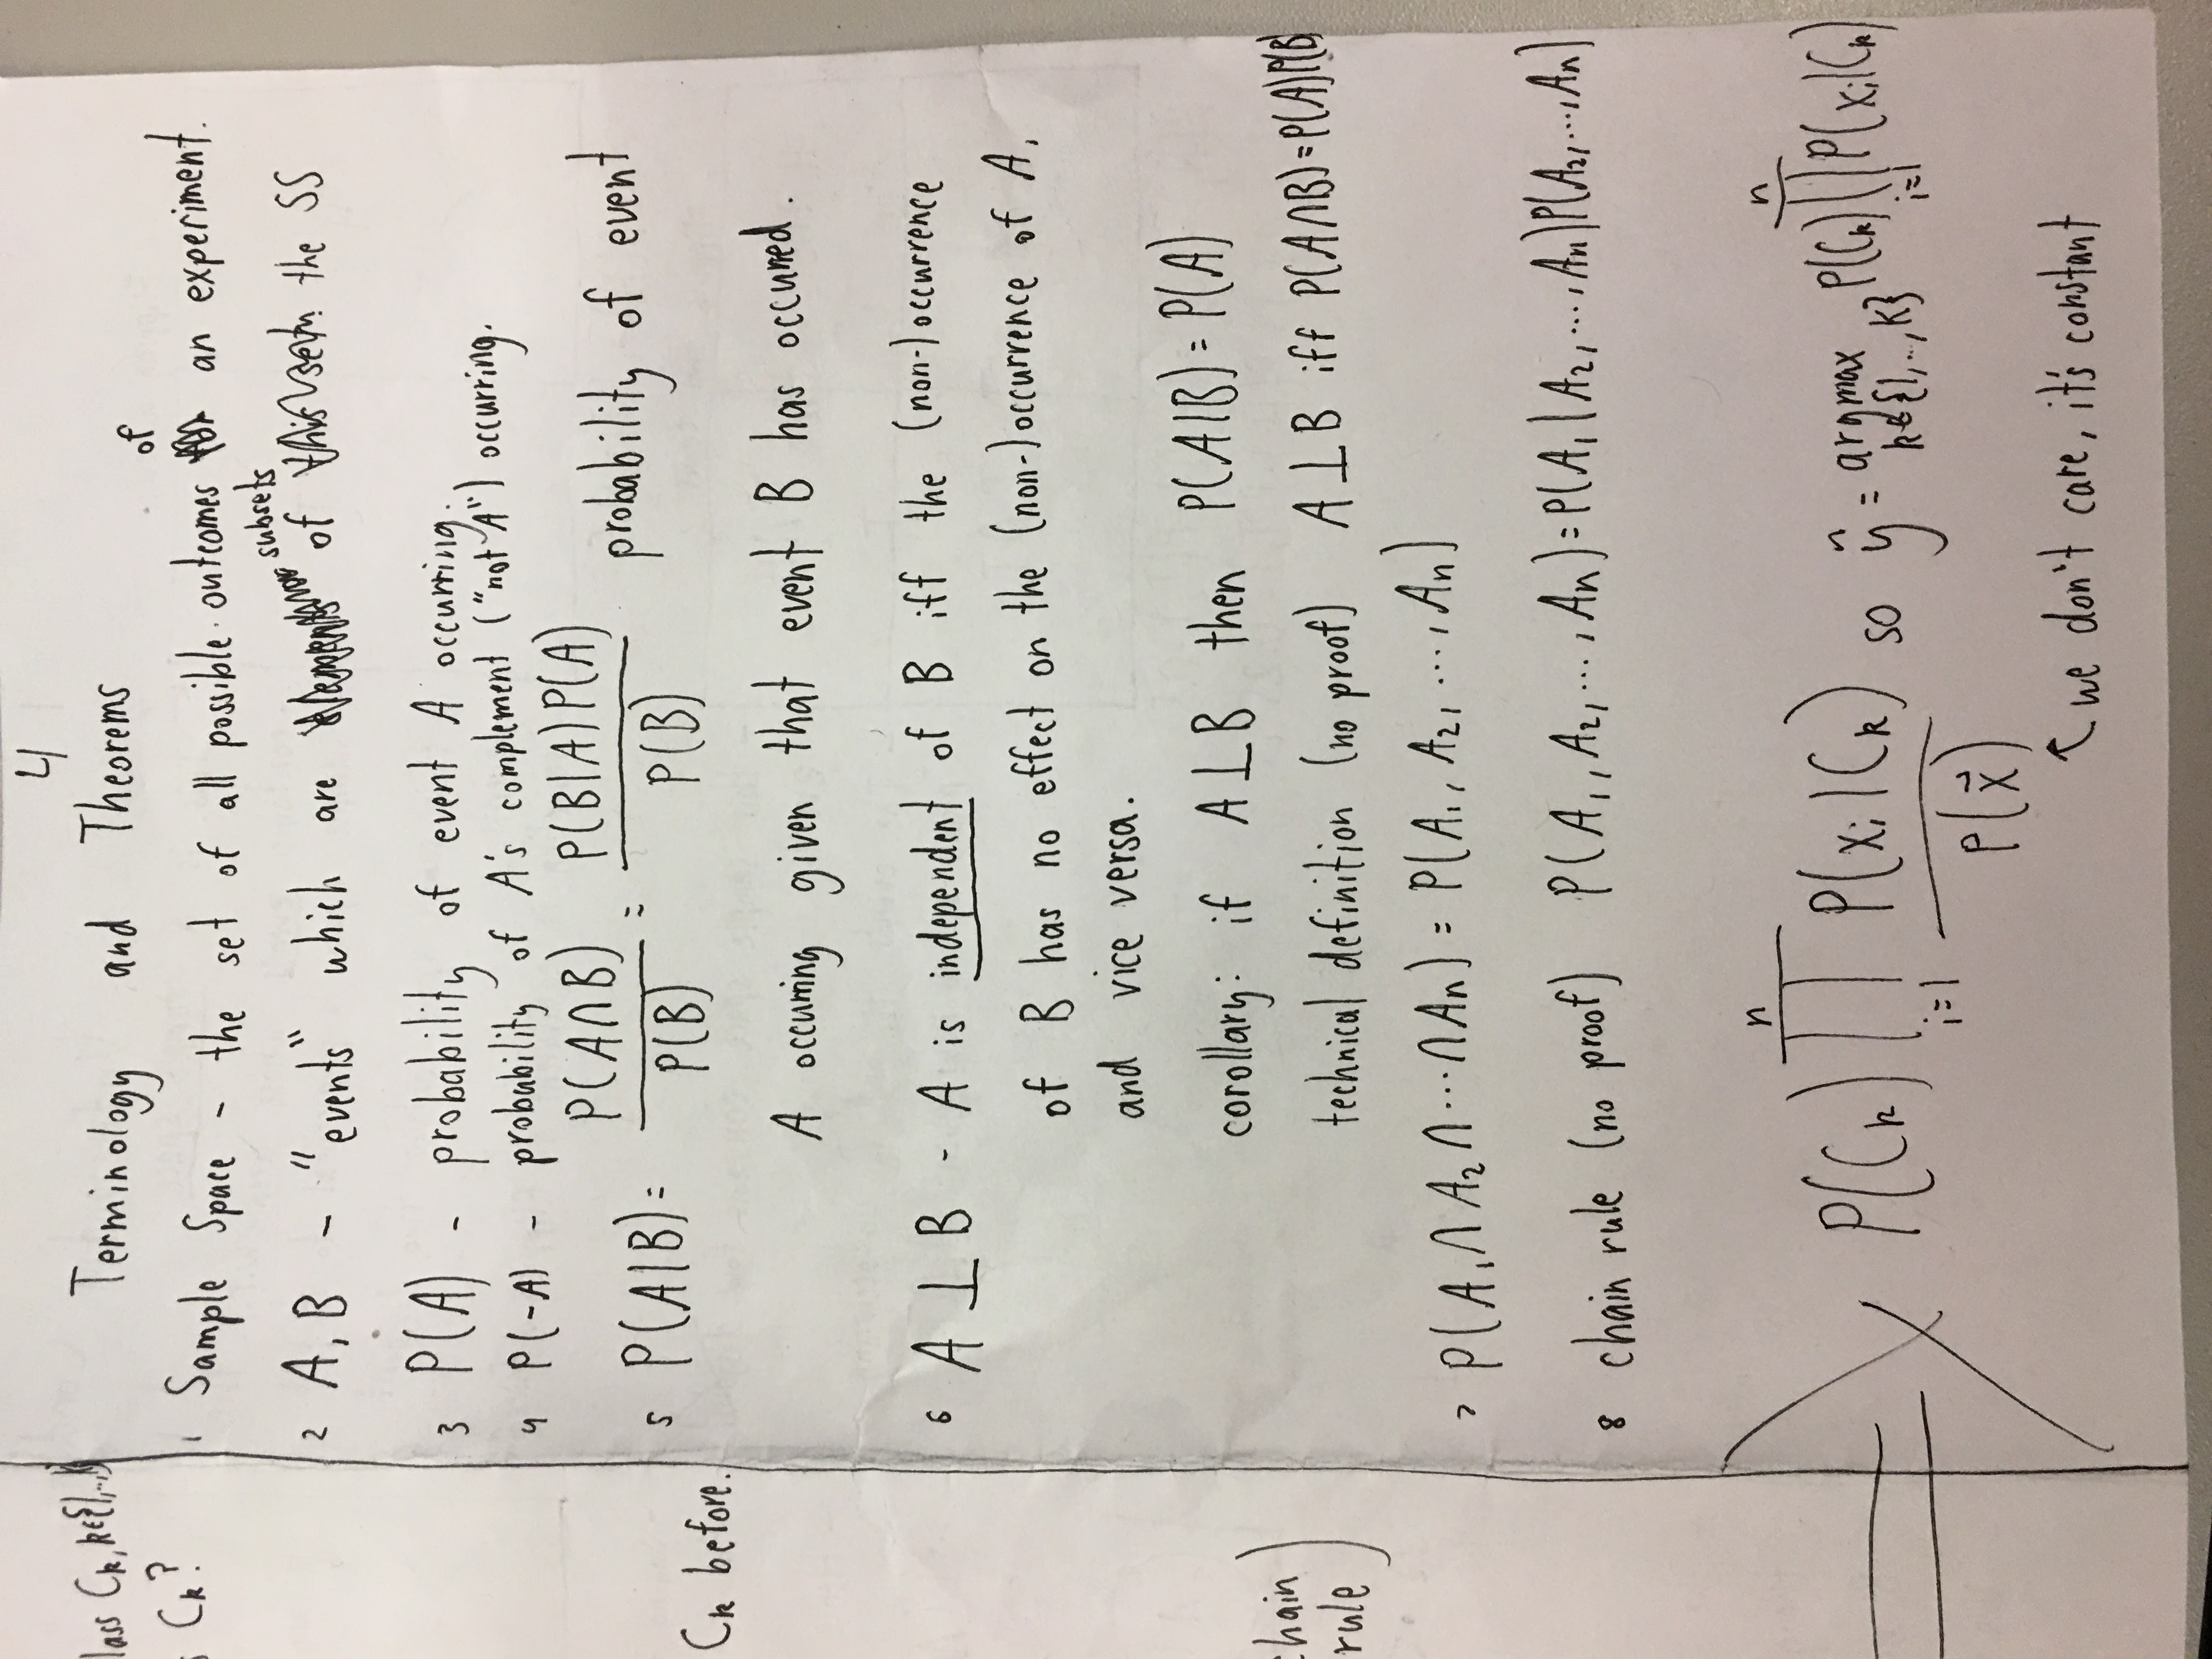 lass Ck, k∈{1,..,K}
Ck?
Ck before.
chain
rule)
4
Terminology and Theorems
1 Sample Space - the set of all possible outcomes of an experiment.
2 A, B - "events" which are subsets of the SS
3 P(A) - probability of event A occurring.
4 P(-A) - probability of A's complement ("not A") occurring.
5 P(A|B) = P(A∩B) / P(B) = P(B|A)P(A) / P(B) probability of event
A occurring given that event B has occurred.
6 A ⊥ B - A is independent of B iff the (non-)occurrence
of B has no effect on the (non-)occurrence of A,
and vice versa.
corollary: if A⊥B then P(A|B) = P(A)
technical definition (no proof) A⊥B iff P(A∩B)=P(A)P(B)
7 P(A₁∩A₂∩···∩Aₙ) = P(A₁, A₂, ..., Aₙ)
8 chain rule (no proof) P(A₁, A₂, ..., Aₙ) = P(A₁|A₂, ..., Aₙ)P(A₂, ..., Aₙ)
P(Ck) ∏ⁿᵢ₌₁ P(xᵢ|Ck) / P(x⃗) so ŷ = argmax k∈{1,..,K} P(Ck) ∏ⁿᵢ₌₁ P(xᵢ|Ck)
↖ we don't care, it's constant